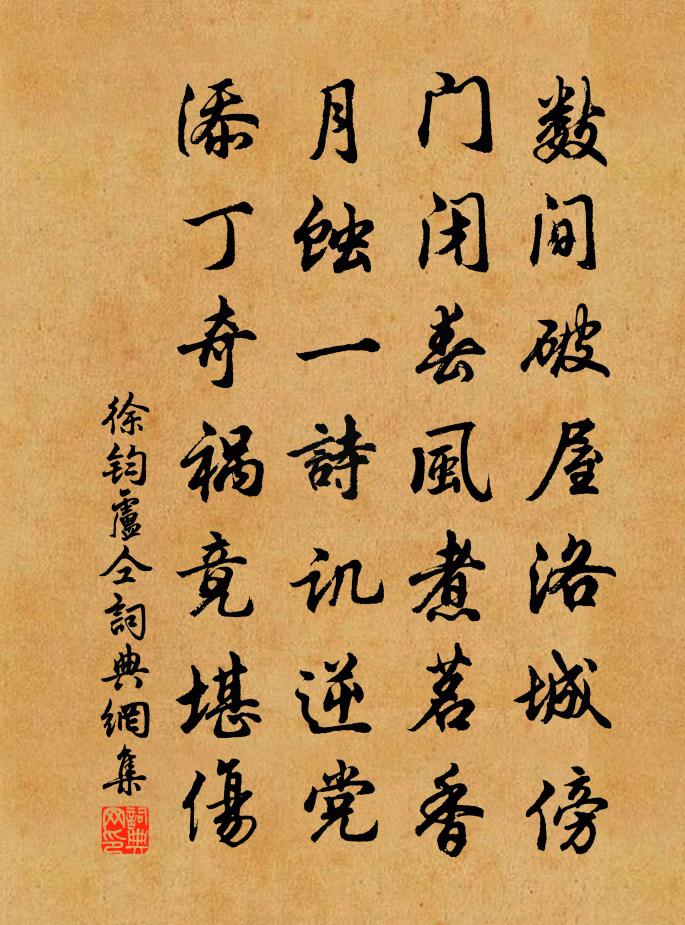 数间破屋洛城傍
门闭春風煮茗香
月蚀一詩讥逆党
添丁奇祸竟堪傷
徐钧盧仝詞典網集
詞典网印